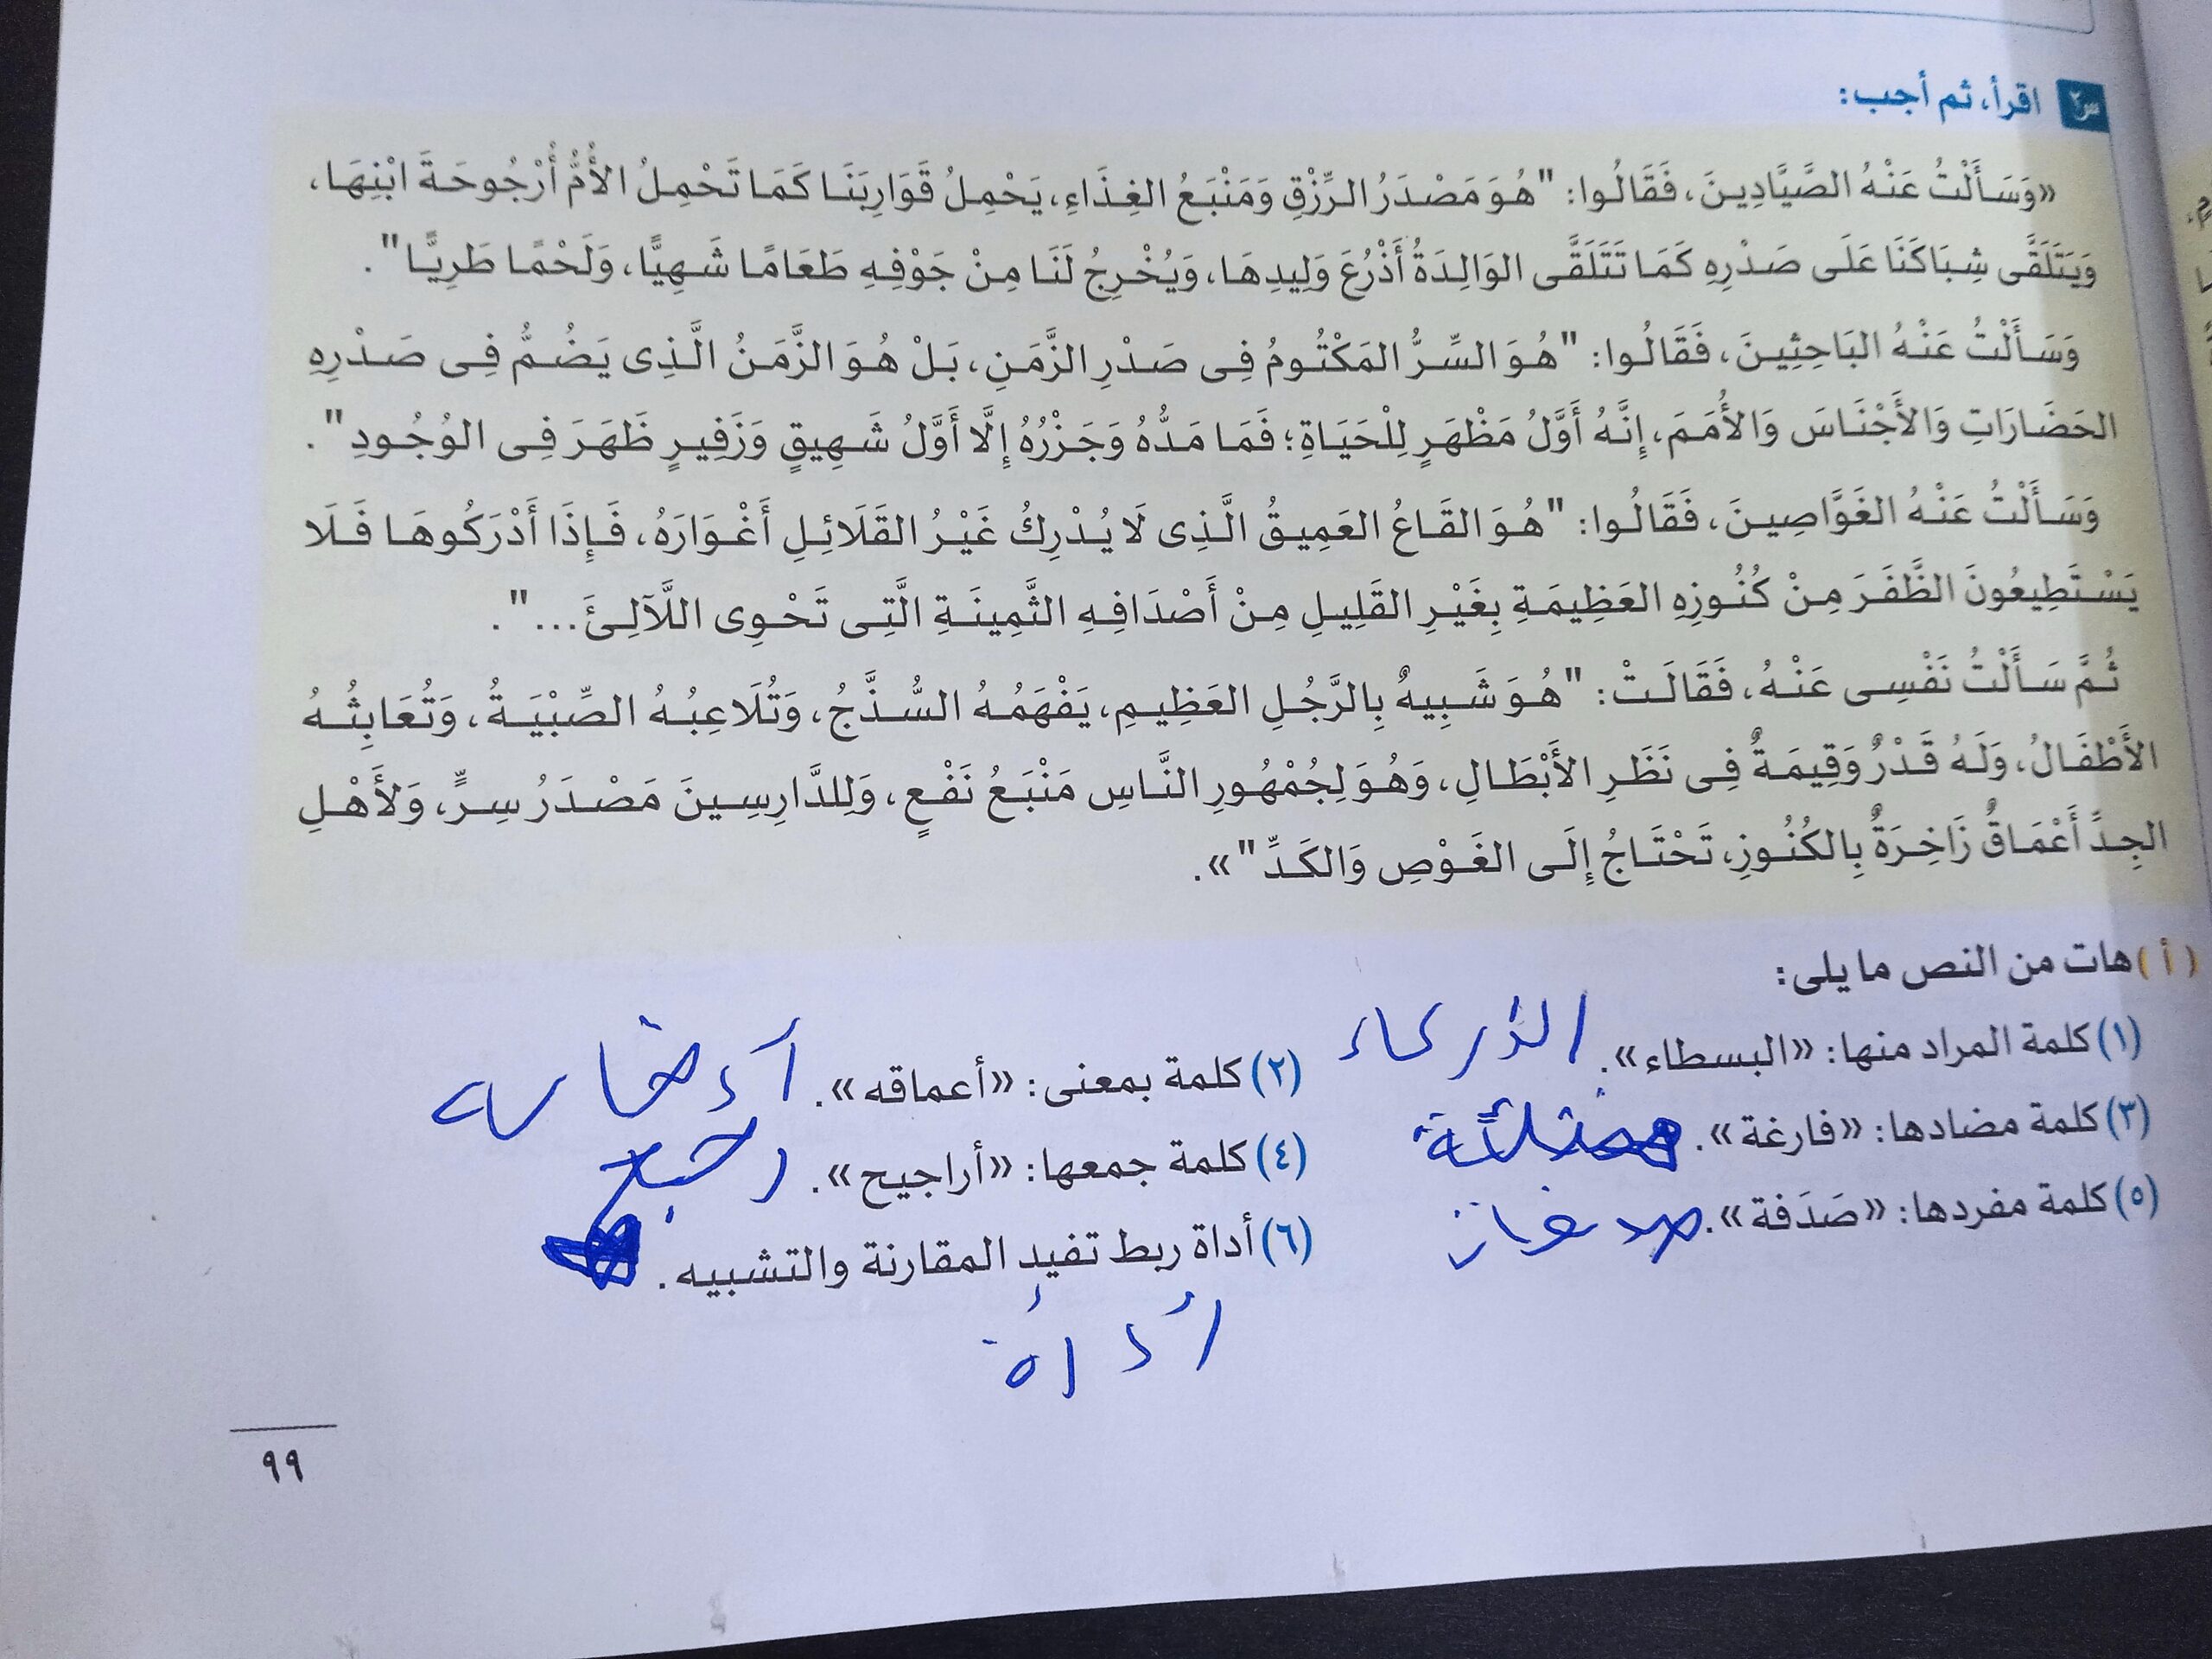 س٢ اقرأ، ثم أجب:
«وَسَأَلْتُ عَنْهُ الصَّيَّادِينَ، فَقَالُوا: "هُوَ مَصْدَرُ الرِّزْقِ وَمَنْبَعُ الغِذَاءِ، يَحْمِلُ قَوَارِبَنَا كَمَا تَحْمِلُ الأُمُّ أُرْجُوحَةَ ابْنِهَا،
وَيَتَلَقَّى شِبَاكَنَا عَلَى صَدْرِهِ كَمَا تَتَلَقَّى الوَالِدَةُ أَذْرُعَ وَلِيدِهَا، وَيُخْرِجُ لَنَا مِنْ جَوْفِهِ طَعَامًا شَهِيًّا، وَلَحْمًا طَرِيًّا".
وَسَأَلْتُ عَنْهُ البَاحِثِينَ، فَقَالُوا: "هُوَ السِّرُّ المَكْتُومُ فِى صَدْرِ الزَّمَنِ، بَلْ هُوَ الزَّمَنُ الَّذِى يَضُمُّ فِى صَدْرِهِ
الحَضَارَاتِ وَالأَجْنَاسَ وَالأُمَمَ، إِنَّهُ أَوَّلُ مَظْهَرٍ لِلْحَيَاةِ؛ فَمَا مَدُّهُ وَجَزْرُهُ إِلَّا أَوَّلُ شَهِيقٍ وَزَفِيرٍ ظَهَرَ فِى الوُجُودِ".
وَسَأَلْتُ عَنْهُ الغَوَّاصِينَ، فَقَالُوا: "هُوَ القَاعُ العَمِيقُ الَّذِى لَا يُدْرِكُ غَيْرُ القَلَائِلِ أَغْوَارَهُ، فَإِذَا أَدْرَكُوهَا فَلَا
يَسْتَطِيعُونَ الظَّفَرَ مِنْ كُنُوزِهِ العَظِيمَةِ بِغَيْرِ القَلِيلِ مِنْ أَصْدَافِهِ الثَّمِينَةِ الَّتِى تَحْوِى اللَّآلِئَ...".
ثُمَّ سَأَلْتُ نَفْسِى عَنْهُ، فَقَالَتْ: "هُوَ شَبِيهٌ بِالرَّجُلِ العَظِيمِ، يَفْهَمُهُ السُّذَّجُ، وَتُلَاعِبُهُ الصِّبْيَةُ، وَتُعَابِثُهُ
الأَطْفَالُ، وَلَهُ قَدْرٌ وَقِيمَةٌ فِى نَظَرِ الأَبْطَالِ، وَهُوَ لِجُمْهُورِ النَّاسِ مَنْبَعُ نَفْعٍ، وَلِلدَّارِسِينَ مَصْدَرُ سِرٍّ، وَلأَهْلِ
الجِدِّ أَعْمَاقٌ زَاخِرَةٌ بِالكُنُوزِ، تَحْتَاجُ إِلَى الغَوْصِ وَالكَدِّ"».
(أ) هات من النص ما يلى:
(١) كلمة المراد منها: «البسطاء».
(٢) كلمة بمعنى: «أعماقه».
(٣) كلمة مضادها: «فارغة».
(٤) كلمة جمعها: «أراجيح».
(٥) كلمة مفردها: «صَدَفة».
(٦) أداة ربط تفيد المقارنة والتشبيه.
أداة
٩٩